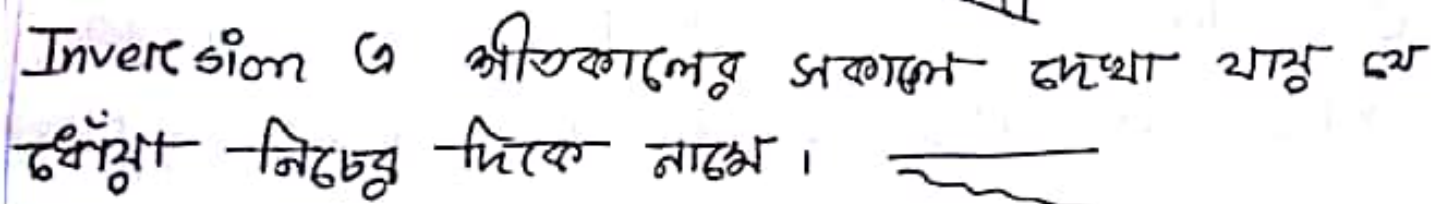 Inversion এ শীতকালের সকালে দেখা যায় যে
ধোঁয়া নিচের দিকে নামে।